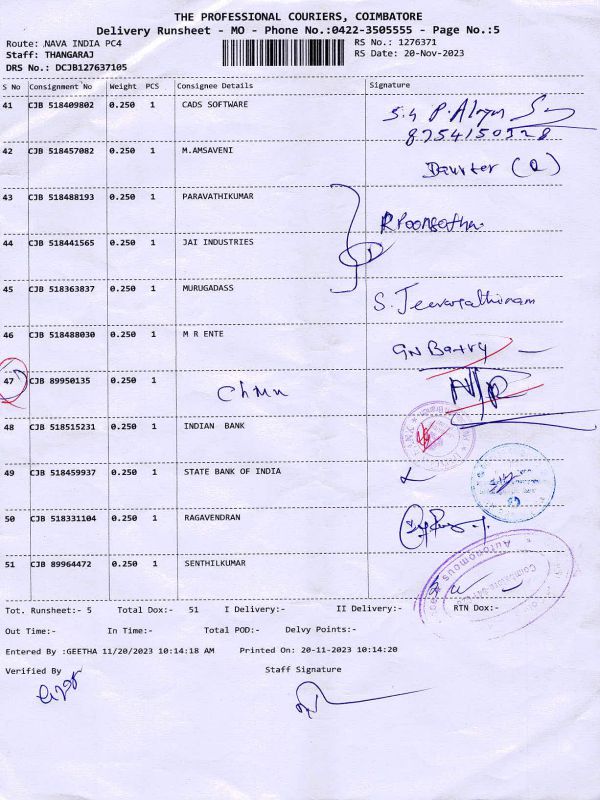 THE PROFESSIONAL COURIERS, COIMBATORE
Delivery Runsheet - MO - Phone No.:0422-3505555 - Page No.:5
Route: NAVA INDIA PC4 RS No.: 1276371
Staff: THANGARAJ RS Date: 20-Nov-2023
DRS No.: DCJB127637105
S No Consignment No Weight PCS Consignee Details Signature
41 CJB 518409802 0.250 1 CADS SOFTWARE
8754150528
42 CJB 518457082 0.250 1 M.AMSAVENI
43 CJB 518488193 0.250 1 PARAVATHIKUMAR
44 CJB 518441565 0.250 1 JAI INDUSTRIES
45 CJB 518363837 0.250 1 MURUGADASS
46 CJB 518488030 0.250 1 M R ENTE
47 CJB 89950135 0.250 1
48 CJB 518515231 0.250 1 INDIAN BANK
49 CJB 518459937 0.250 1 STATE BANK OF INDIA
50 CJB 518331104 0.250 1 RAGAVENDRAN
51 CJB 89964472 0.250 1 SENTHILKUMAR
Autonomous
Tot. Runsheet:- 5 Total Dox:- 51 I Delivery:- II Delivery:- RTN Dox:-
Out Time:- In Time:- Total POD:- Delvy Points:-
Entered By :GEETHA 11/20/2023 10:14:18 AM Printed On: 20-11-2023 10:14:20
Verified By Staff Signature